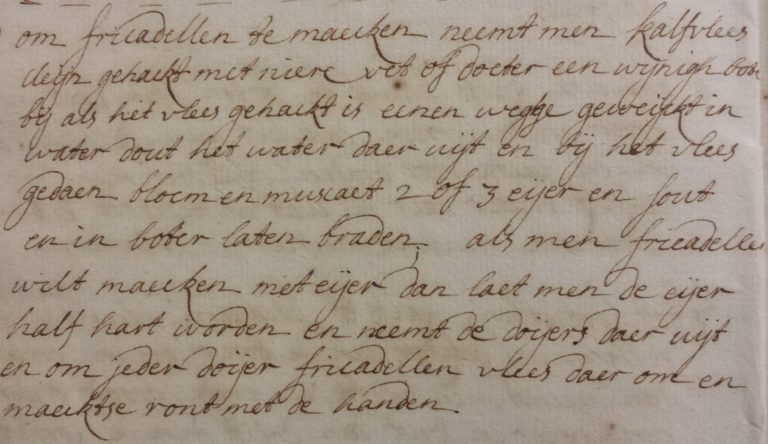 om fricadellen te maecken neemt men kalfvlees
cleijn gehackt met niere vet of doeter een wijnigh bote
bij als het vlees gehackt is eenen wegge geweijckt in
water dout het water daer uijt en bij het vlees
gedaen bloem en muscaet 2 of 3 eijer en sout
en in boter laten braden; als men fricadelle
wilt maecken met eijer dan laet men de eijer
half hart worden en neemt de doijers daer uijt
en om jeder doijer fricadellen vlees daer om en
maecktse ront met de handen.